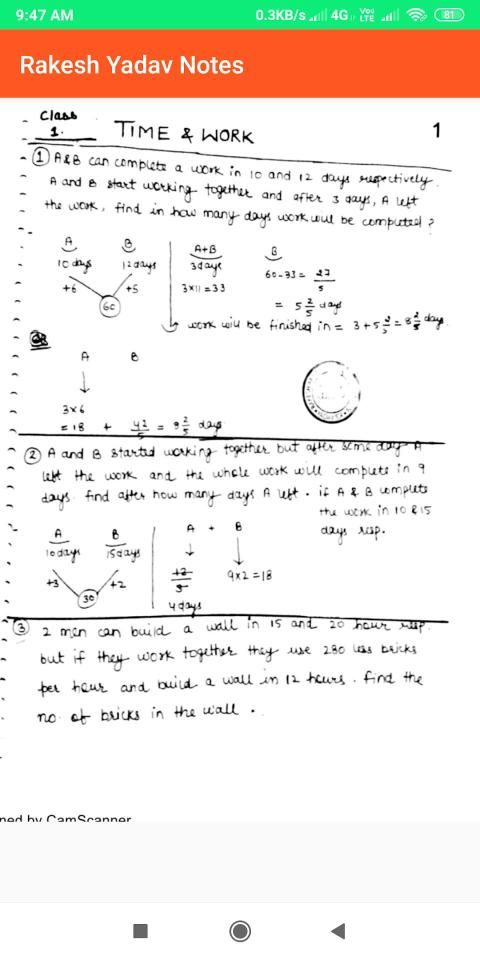 9:47 AM
0.3KB/s 4G Vo) LTE 81
Rakesh Yadav Notes
Class
1.
TIME & WORK
1
① A & B can complete a work in 10 and 12 days respectively.
A and B start working together and after 3 days, A left
the work, find in how many days work will be completed?
A B A+B B
10 days 12 days 3 days 60-33 = 27/5
+6 +5 3×11=33
60 = 5 2/5 days
work will be finished in = 3 + 5 2/5 = 8 2/5 days.
OR
A B
3×6
= 18 + 42/5 = 8 2/5 days
② A and B started working together but after some day A
left the work and the whole work will complete in 9
days. find after how many days A left. if A & B complete
the work in 10 & 15
days resp.
A B A + B
10 days 15 days
+3 +2 12/3 9×2=18
30
4 days
③ 2 men can build a wall in 15 and 20 hour resp.
but if they work together they use 280 less bricks
per hour and build a wall in 12 hours. Find the
no. of bricks in the wall.
ned by CamScanner